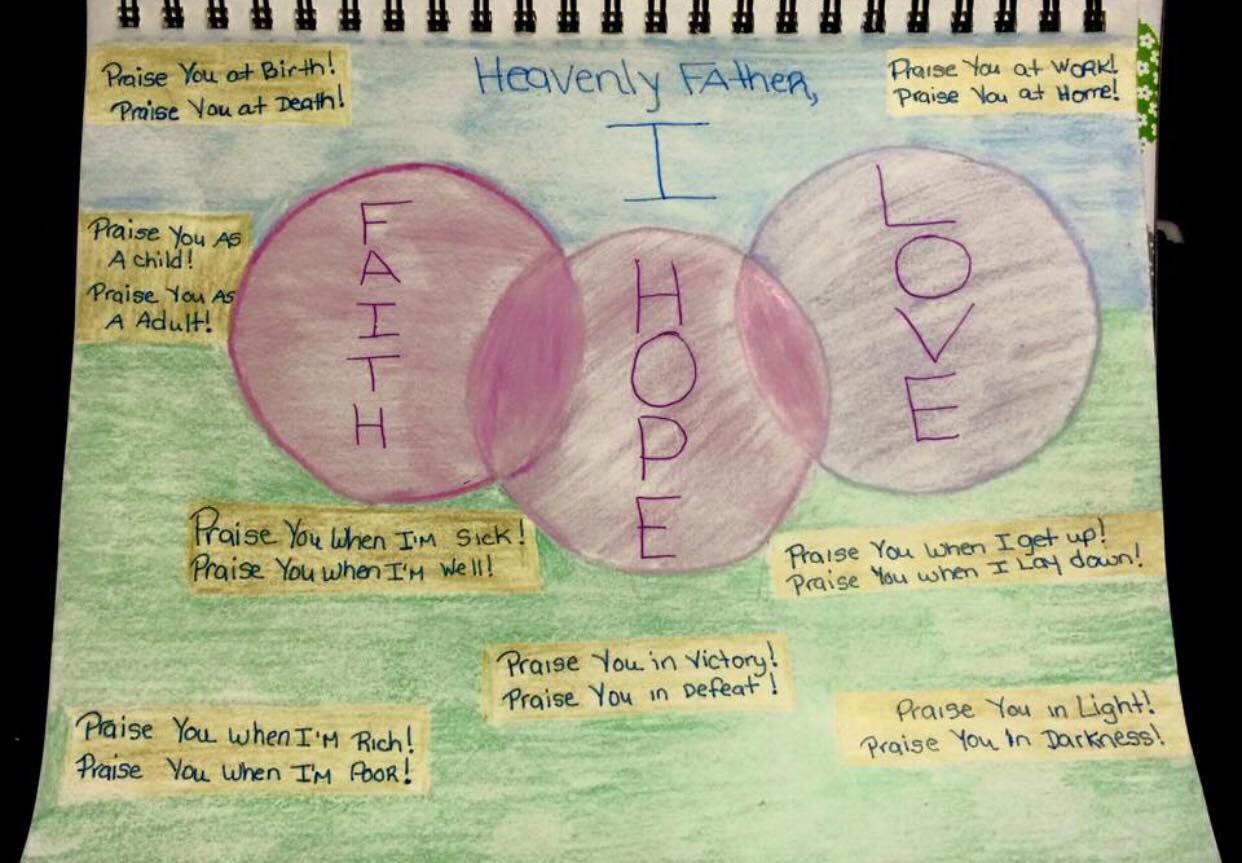 Praise You at Birth!
Praise You at Death!
Heavenly FAther,
I
Praise You at WORK!
Praise You at Home!
Praise You AS
A child!
Praise You AS
A Adult!
FAITH
HOPE
LOVE
Praise You When I'M Sick!
Praise You when I'M Well!
Praise You when I get up!
Praise You when I Lay down!
Praise You in Victory!
Praise You in Defeat!
Praise You when I'M Rich!
Praise You when I'M Poor!
Praise You in Light!
Praise You In Darkness!